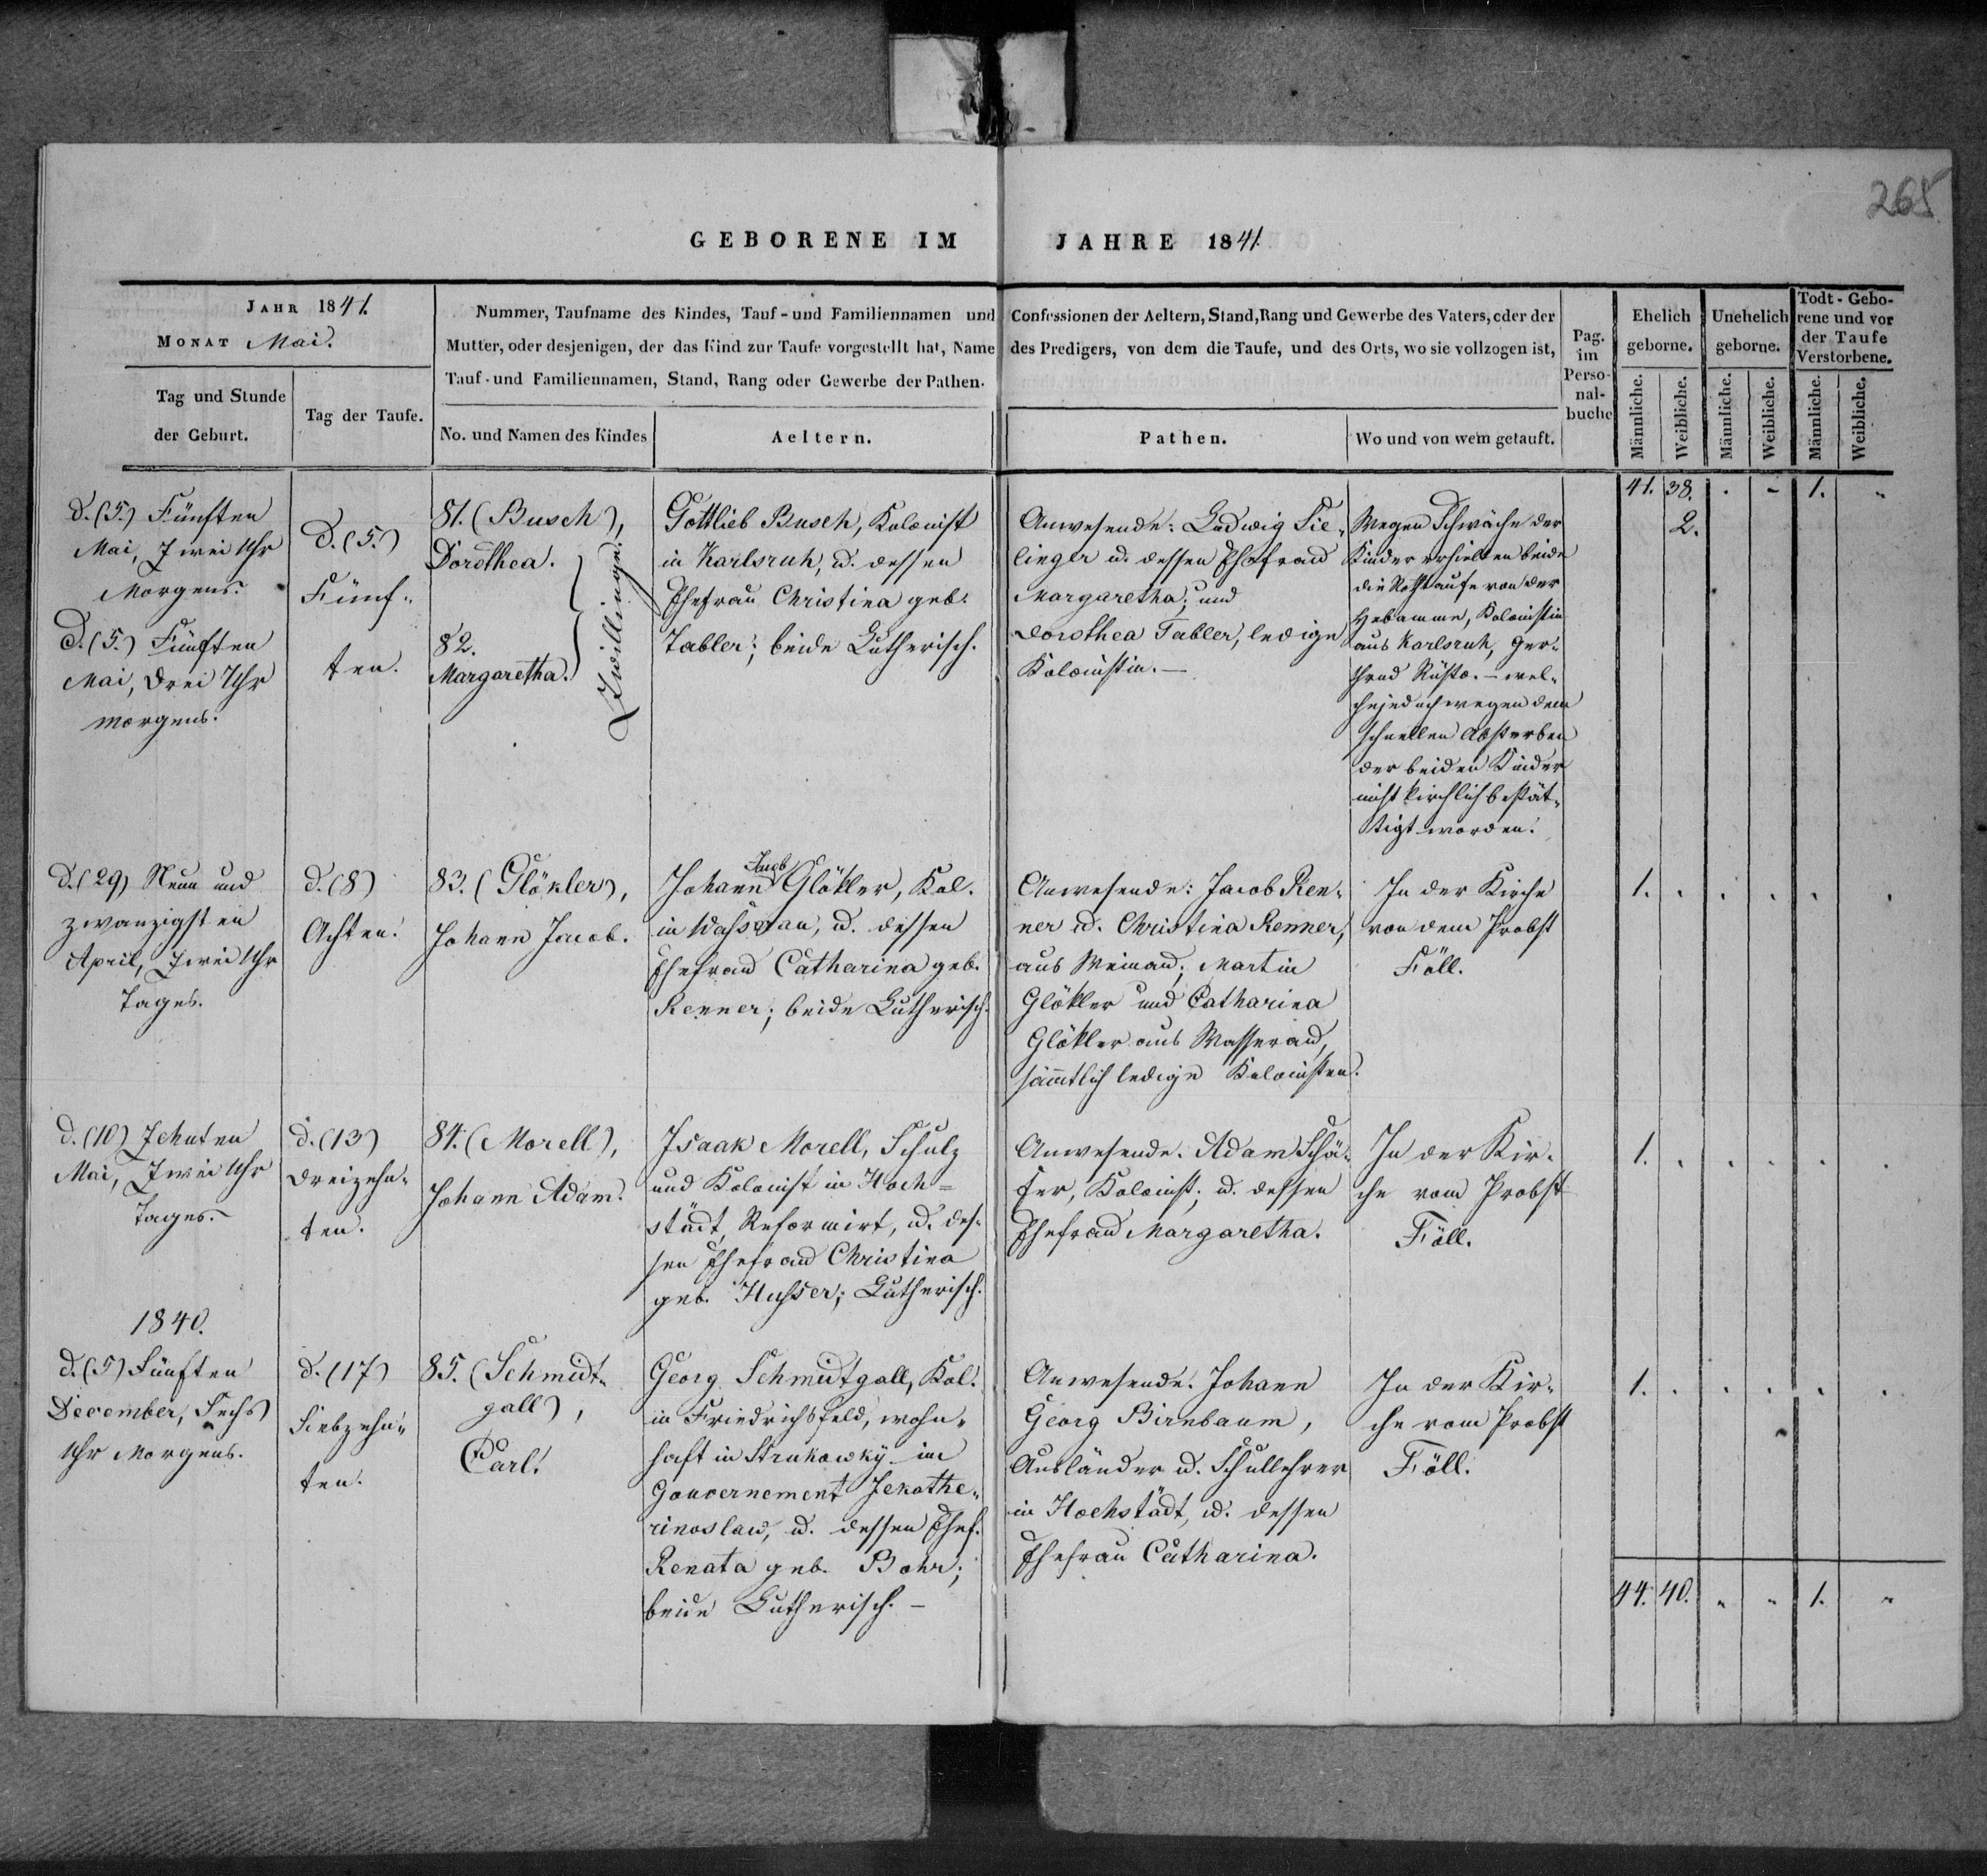 265
GEBORENE IM JAHRE 1841.
JAHR 1841.
MONAT Mai.
Tag und Stunde
der Geburt.
Tag der Taufe.
Nummer, Taufname des Kindes, Tauf- und Familiennamen und Confessionen der Aeltern, Stand, Rang und Gewerbe des Vaters, oder der
Mutter, oder desjenigen, der das Kind zur Taufe vorgestellt hat, Name des Predigers, von dem die Taufe, und des Orts, wo sie vollzogen ist,
Tauf- und Familiennamen, Stand, Rang oder Gewerbe der Pathen.
No. und Namen des Kindes
Aeltern.
Pathen.
Wo und von wem getauft.
Pag.
im
Perso-
nal-
buche
Ehelich
geborne.
Unehelich
geborne.
Todt-Gebo-
rene und vor
der Taufe
Verstorbene.
Männliche.
Weibliche.
Männliche.
Weibliche.
Männliche.
Weibliche.
41. 38. . - 1. "
d. (5.) Fünften
Mai, Zwei Uhr
Morgens.
D. (5.) Fünften
Mai, Drei Uhr
morgens.
D. (5.)
Fünf-
ten.
81. (Busch),
Dorothea.
82.
Margaretha.
Zwillinge.
Gottlieb Busch, Kolonist
in Karlsruh, u. dessen
Ehefrau Christina geb.
Tabler; beide Lutherisch.
Anwesende: Ludwig Sie-
linger u. dessen Ehefrau
Margaretha; und
Dorothea Tabler, ledige
Kolonistin. —
Wegen Schwäche der
Kinder erhielten beide
die Nothtaufe von der
Hebamme, Kolonistin
aus Karlsruh, Ger-
thrud — wel-
che jedoch wegen dem
schnellen Absterben
der beiden Kinder
nicht kirchlich bestät-
tigt worden.
2.
d. (29) Neun und
zwanzigsten
April, Zwei Uhr
Tages.
d. (8)
Achten.
83. (Glökler),
Johann Jacob.
Jacob
Johann Glökler, Kol.
in Wasserau, u. dessen
Ehefrau Catharina geb.
Renner; beide Lutherisch.
Anwesende: Jacob Ren-
ner u. Christina Renner,
aus Weinau; Martin
Glökler und Catharina
Glökler aus Wasserau,
sämtlich ledige Kolonisten.
In der Kirche
von dem Probst
Föll.
1. . . . . .
d. (10) Zehnten
Mai, Zwei Uhr
Tages. -
d. (13)
dreizehn-
ten.
84. (Morell),
Johann Adam.
Isaak Morell, Schulz
und Kolonist in Hoch=
städt, Reformirt, u. des-
sen Ehefrau Christina
geb. Husser; Lutherisch.
Anwesende. Adam Schä-
fer, Kolonist; u. dessen
Ehefrau Margaretha.
In der Kir-
che vom Probst
Föll.
1. . . . . .
1840.
d. (5) Fünften
December, Sechs
Uhr Morgens.
d. (17)
Siebzehn-
ten.
85. (Schmidt-
gall),
Carl.
Georg Schmidtgall, Kol.
in Friedrichsfeld, wohn-
haft in Strukowky im
Gouvernement Jekathe-
rinoslaw, u. dessen Ehef.
Renata geb. Bohr;
beide Lutherisch. —
Anwesende. Johann
Georg Birnbaum,
Ausländer u. Schullehrer
in Hochstädt, u. dessen
Ehefrau Catharina.
In der Kir-
che vom Probst
Föll.
1. . . . . .
44. 40. " " 1. "